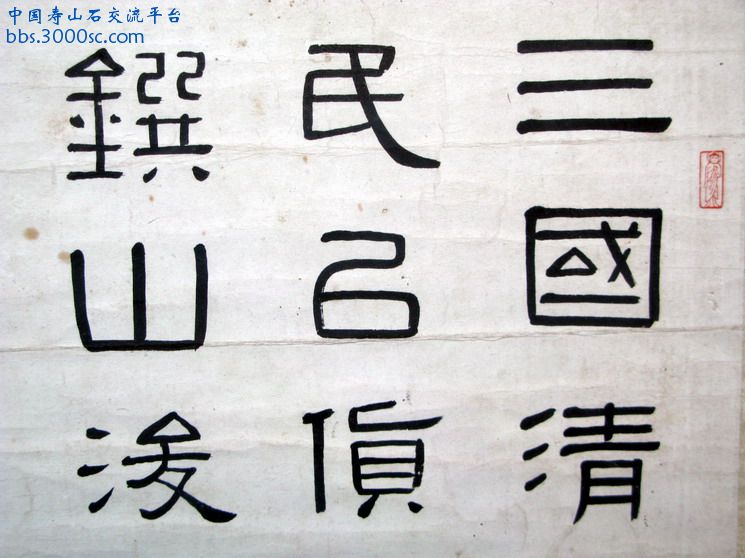 中国寿山石交流平台
bbs.3000sc.com
三國清
民㠯貨
鐉山浚